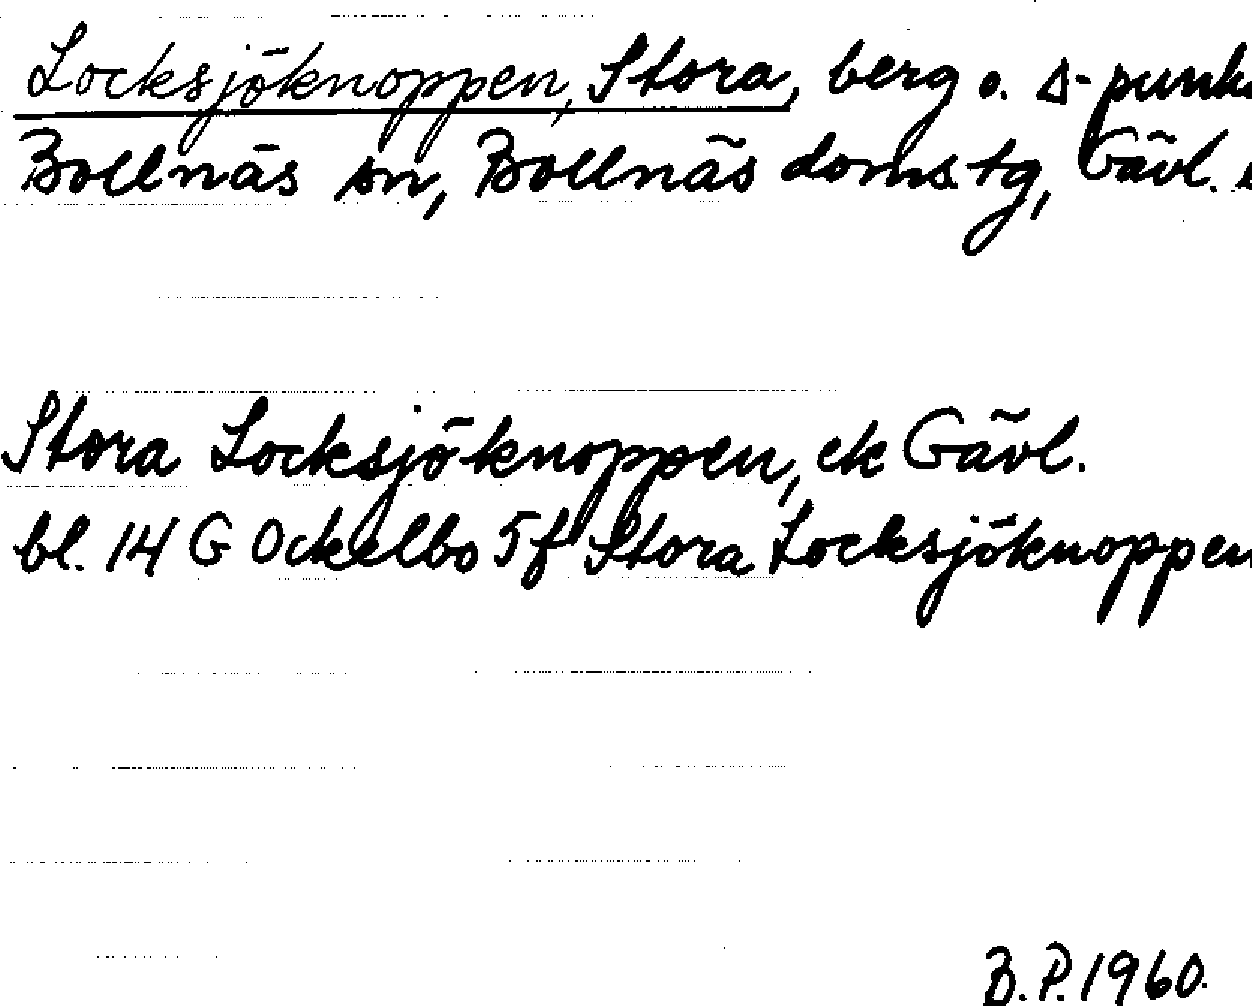 Locksjöknoppen, Stora, berg o. Δ-punk
Bollnäs sn, Bollnäs doms.tg, Gävl.
Stora Locksjöknoppen, ek Gävl.
bl. 14 G Ockelbo 5f Stora Locksjöknoppen
B.P. 1960.